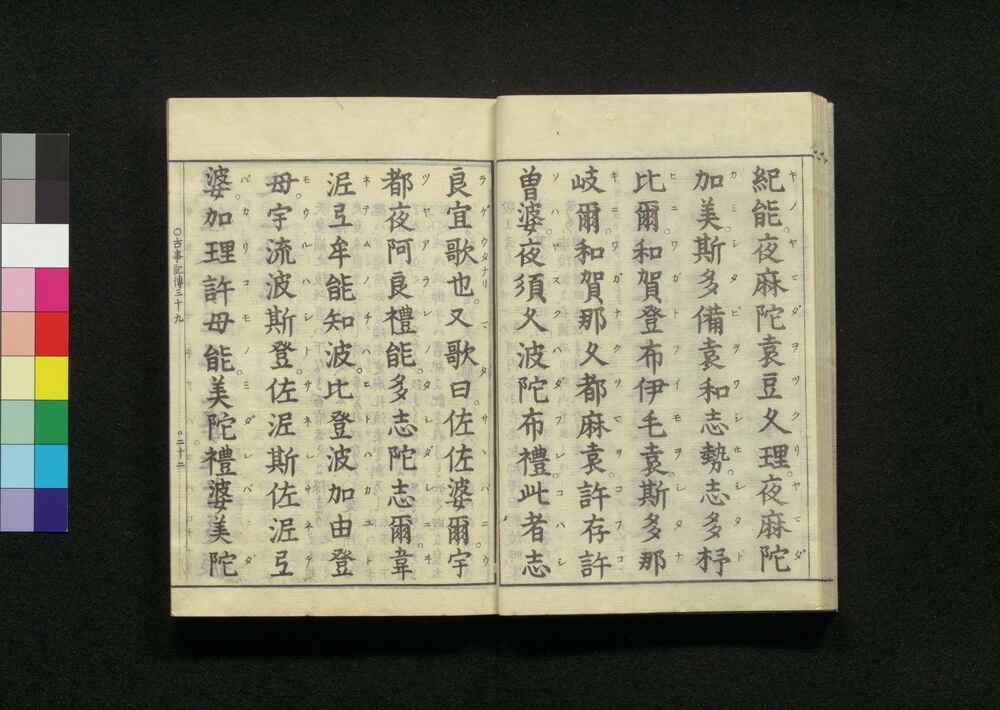 紀能。夜麻陀袁豆久理。夜麻陀
加美。斯多備袁和志勢。志多杼
比爾。和賀登布伊毛袁。斯多那
岐爾。和賀那久都麻袁。許存許
曽婆。夜須久波陀布禮。此者志
良宜歌也。又歌曰。佐佐婆爾。宇
都夜阿良禮能。多志陀志爾。韋
泥弖牟能知波。比登波加由登
母。宇流波斯登。佐泥斯佐泥弖
婆。加理許母能。美陀禮婆美陀
○古事記傳三十九
○二十二